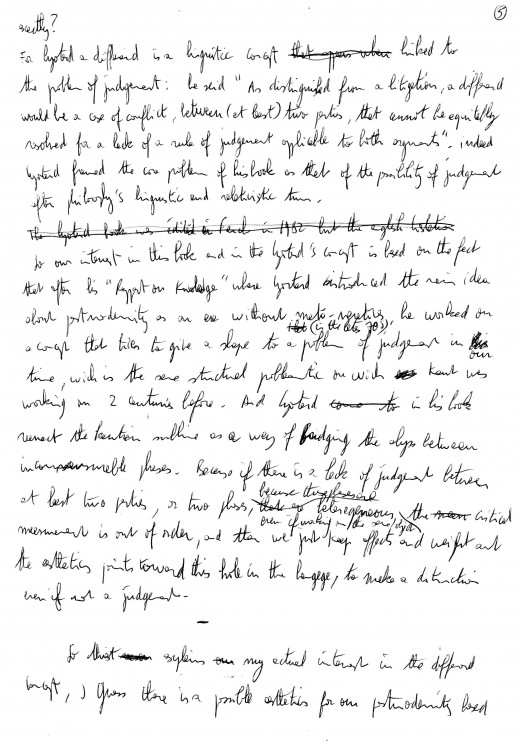 5
exactly?
For Lyotard a differend is a linguistic concept that appears when linked to
the problem of judgement: he said "As distinguished from a litigation, a differend
would be a case of conflict, between (at least) two parties, that cannot be equitably
resolved for a lack of a rule of judgement applicable to both arguments". indeed
Lyotard framed the core problem of his book as that of the possibility of judgement
after philosophy's linguistic and relativistic turn.
The Lyotard book was edited in French in 1982 but the english
So our interest in this book and in the Lyotard's concept is based on the fact
that after his "Rapport on Knowledge" where Lyotard introduced the main idea
about postmodernity as an era without meta-narratives, he worked on
(in the late 70s)
a concept that tries to give a shape to a problem of judgement in our
time, wich is the same structural problematic on wich Kant was
working on 2 centuries before. And Lyotard in his book
reenact the kantian sublime as a way of bridging the abyss between
incommensurable phrases. Because if there is a lack of judgment between
at least two parties, or two phrases, because these phrases are
heterogeneous, the critical
even if working in the same
measurement is out of order, and then we just keep effects and weight and
the esthetics points toward this hole in the language, to make a distinction
even if not a judgement.
–
So explains my actual interest in the differend
concept, I guess there is a possible esthetics for our postmodernity based